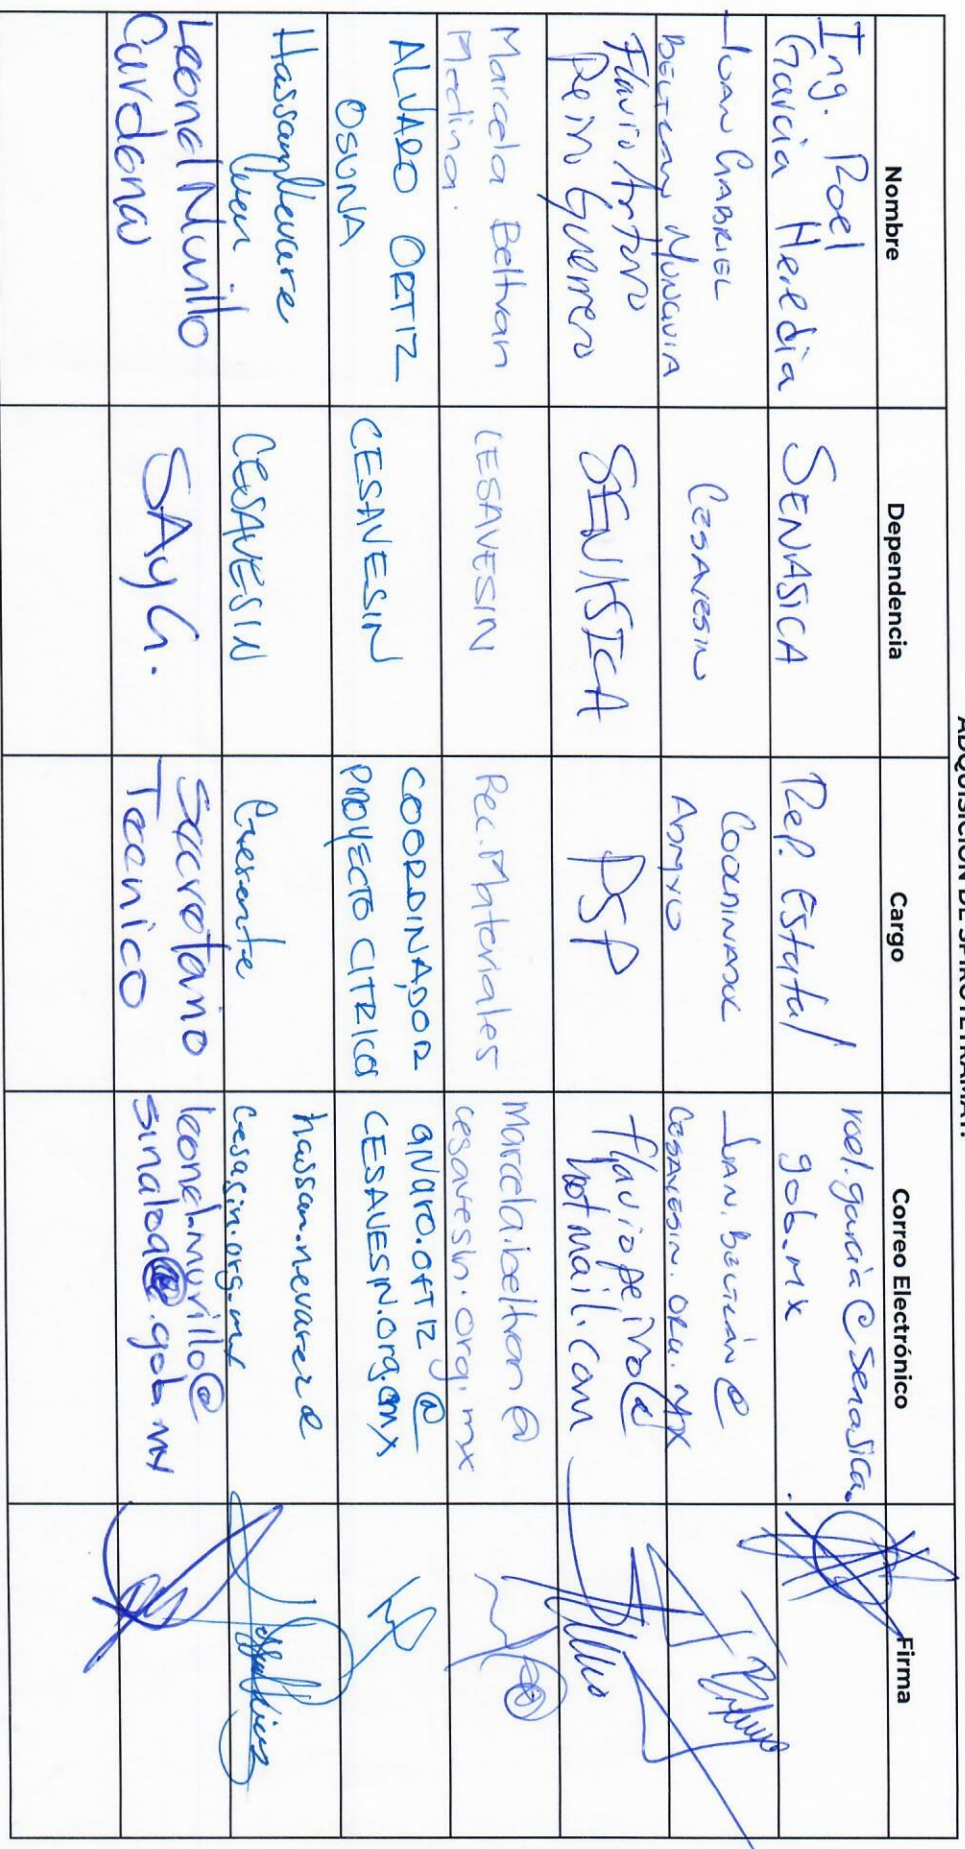 ADQUISICIÓN DE SPIROTETRAMAT.
Nombre
Dependencia
Cargo
Correo Electrónico
Firma
Ing. Roel
García Heredia
SENASICA
Rep. Estatal
roel.garcia@senasica.
gob.mx
JUAN GABRIEL
BELTRAN MUNGUIA
CESAVESIN
COORDINADOR
ADMVO
JUAN.BELTRAN@
CESAVESIN.ORG.MX
Flavio Arturo
Peiro Guerrero
SENASICA
PSP
flaviopeiro@
hotmail.com
Marcela Beltran
Medina.
CESAVESIN
Rec. Materiales
marcela.beltran@
cesavesin.org.mx
ALVARO ORTIZ
OSUNA
CESAVESIN
COORDINADOR
PROYECTO CITRICOS
alvaro.ortiz@
CESAVESIN.org.mx
Hassan
CESAVESIN
hassan.nevarez@
Leonel Murillo
Cardona
SAyG.
Secretario
Tecnico
leonel.murillo@
sinaloa.gob.mx